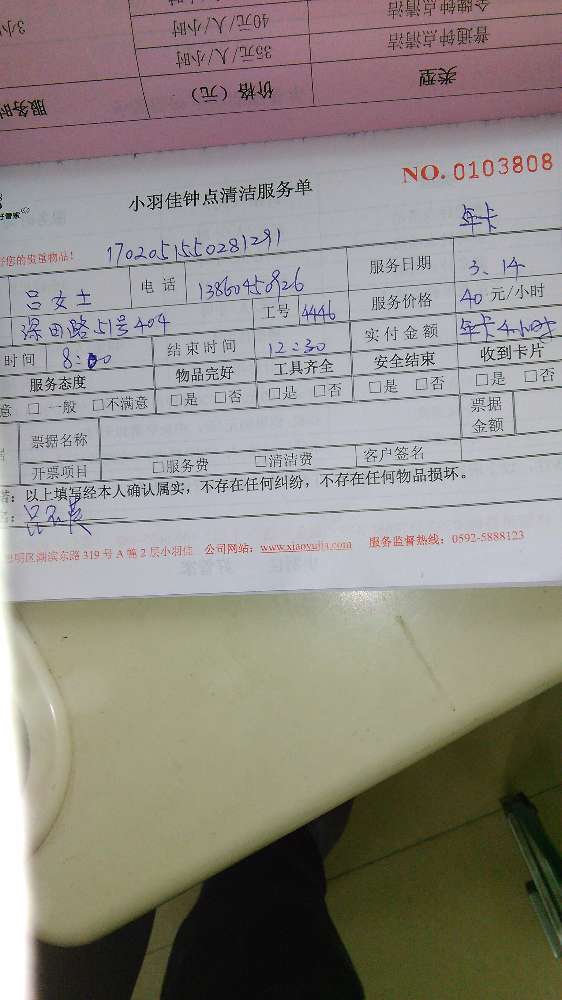 普通钟点清洁 35元/人/小时
金牌钟点清洁 40元/人/小时 3小
类型 价格（元） 服务时
小羽佳钟点清洁服务单 NO. 0103808
好管家
您的贵重物品! 1702051550281291 年卡
吕女士 电话 13860450926 服务日期 3、14
深田路51号404 工号 4446 服务价格 40 元/小时
时间 8:00 结束时间 12:30 实付金额 年卡4小时
服务态度 物品完好 工具齐全 安全结束 收到卡片
意 □一般 □不满意 □是 □否 □是 □否 □是 □否 □是 □否
票据名称 票据金额
开票项目 □服务费 □清洁费 客户签名
：以上填写经本人确认属实，不存在任何纠纷，不存在任何物品损坏。
明区湖滨东路 319 号 A 幢 2 层小羽佳 公司网站：www.xiaoyujia.com 服务监督热线：0592-5888123